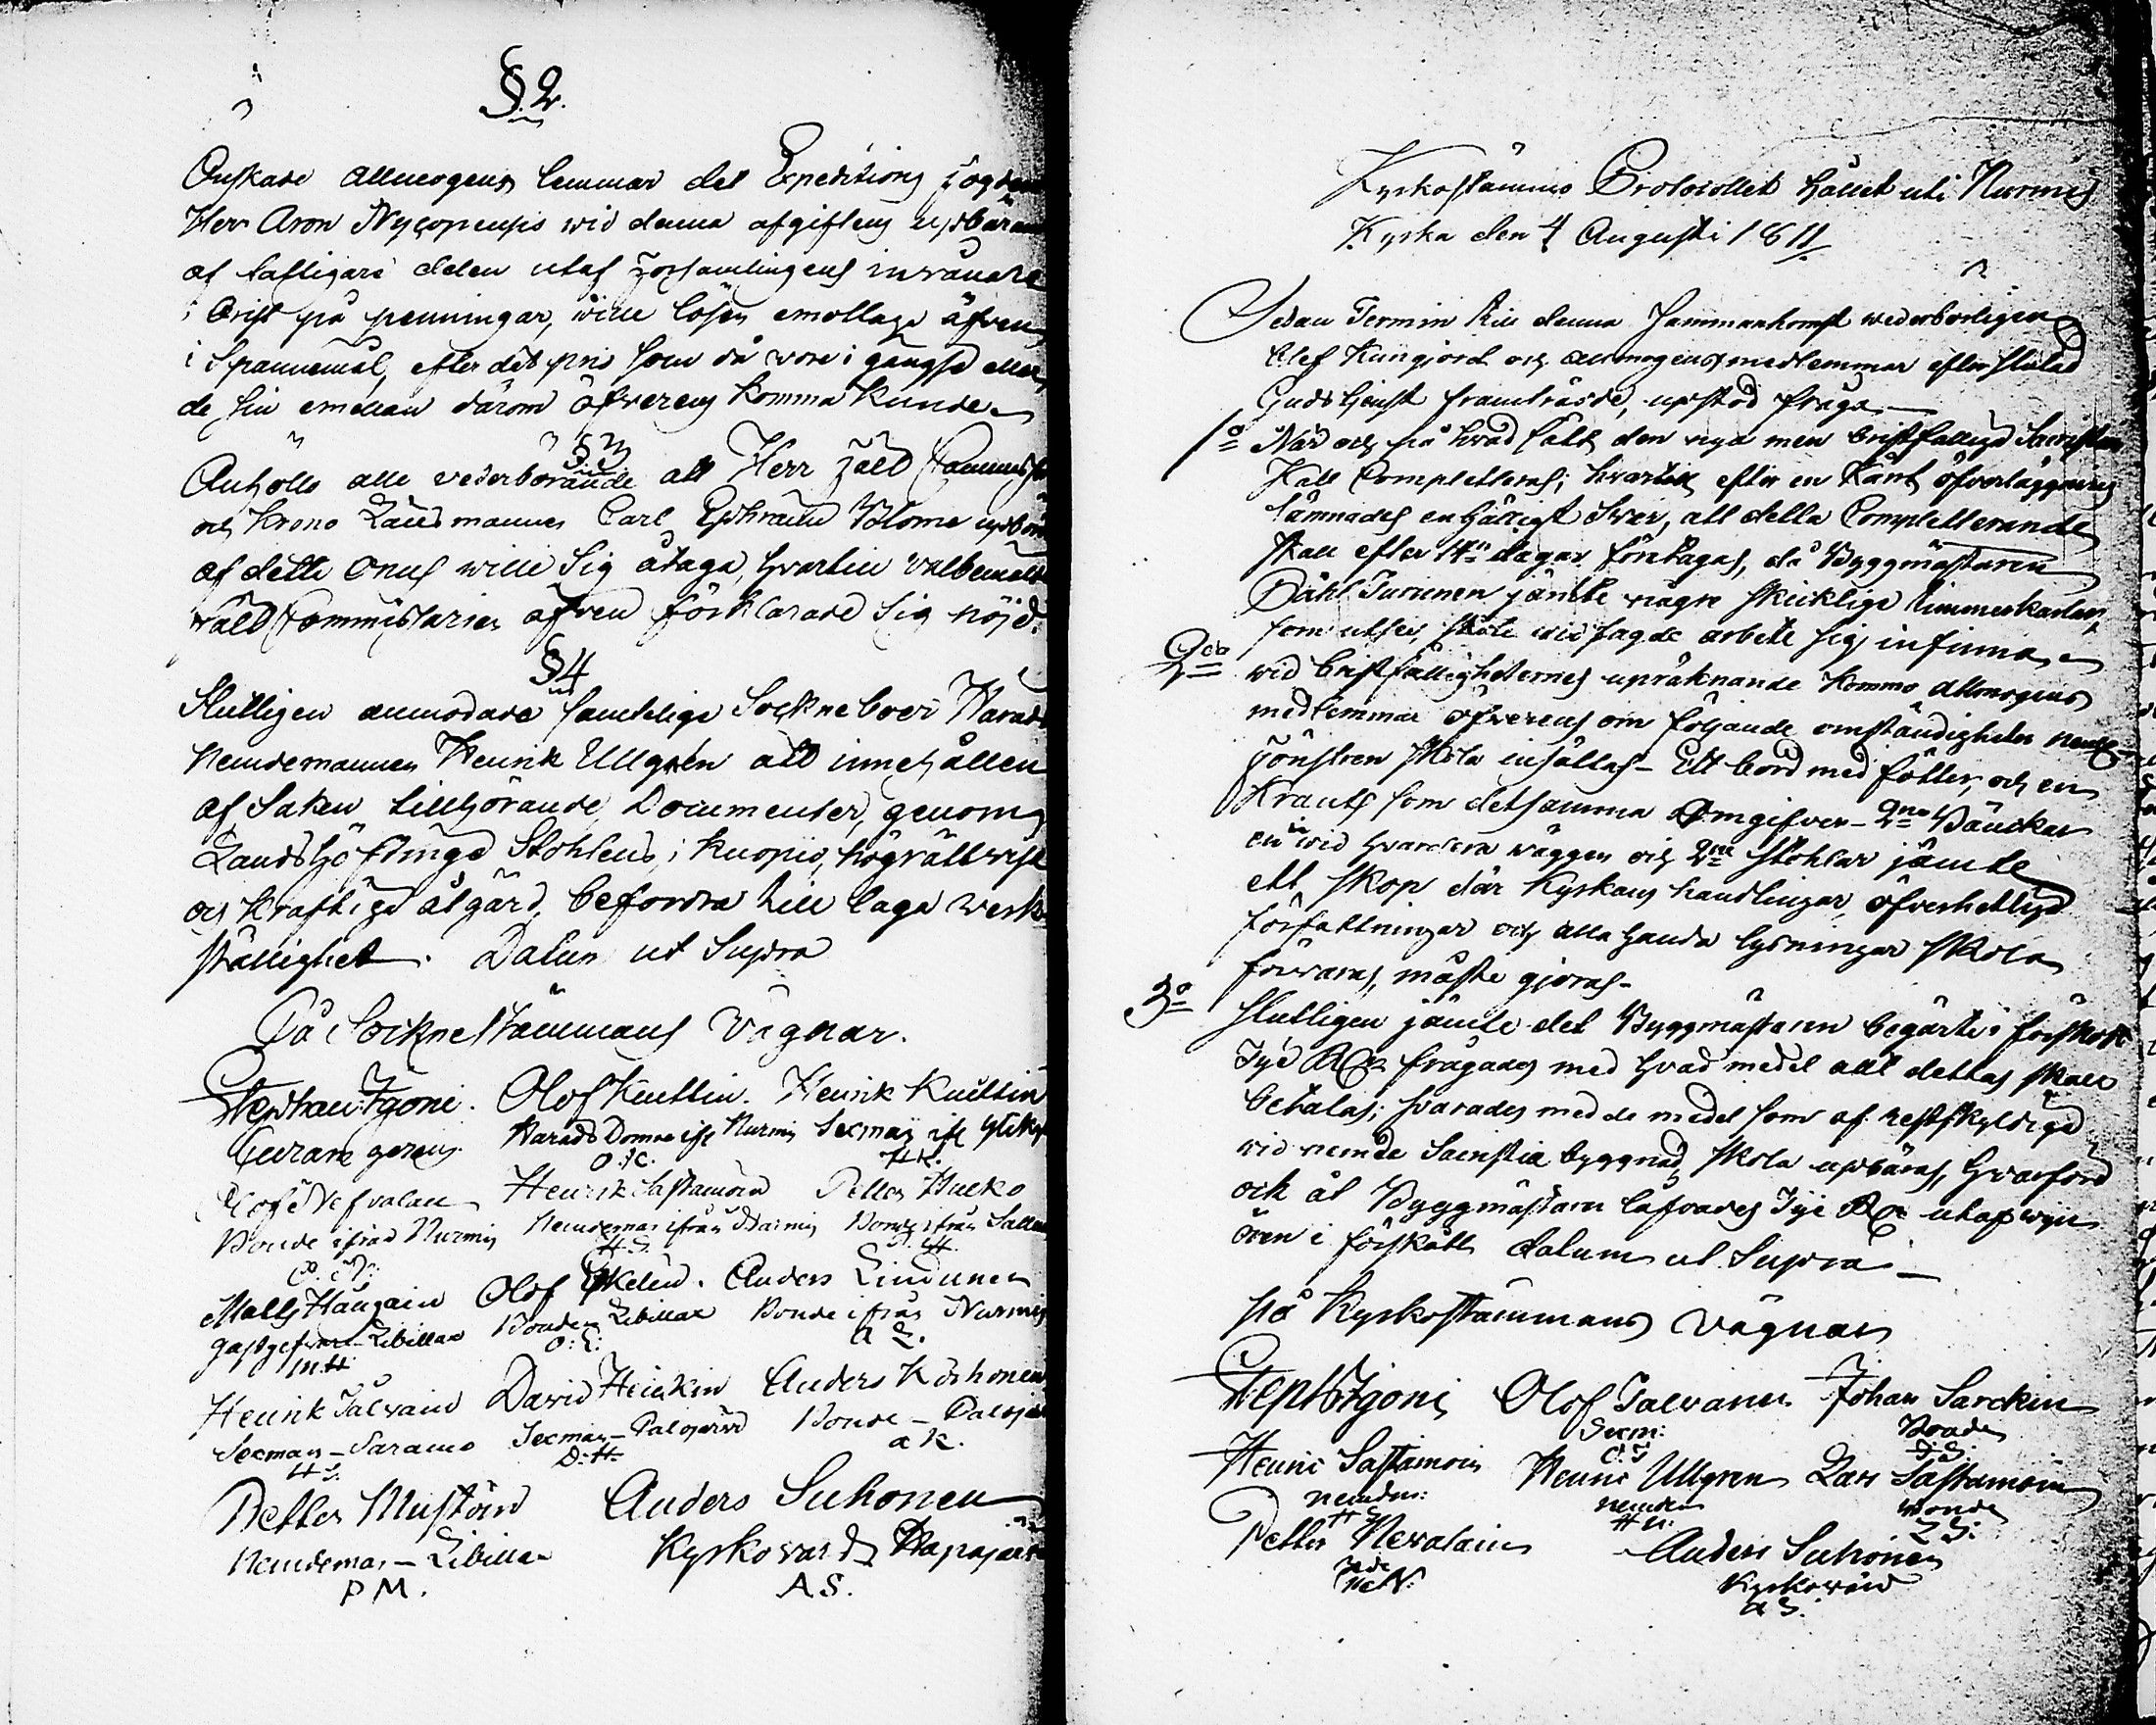 §. 2.
Önskade Allmogens lemmar det Expeditions Fogden
Herr Aron Nycopensis wid denna afgiftens upbärande
af fattigare delen utaf Församlingens inwånare
i brist på penningar, wille lösen emottaga äfven
i Spannemål, efter det pris som då wore i gångse eller
de sin emellan därom öfverens komma kunde
§3
Anhölls alle vederbörande att Herr Fält Cammis
och Krono Länsmannen Carl Ephraim Blome upbörd
af dette onus wille sig åtaga, hvartill välbemälte
Fält Commissarien äfven förklarade sig nöjd.
§4
Slutligen anmodade samtelige Sockneboer Härads
Nemdemannen Henrik Ullgrén att innehållen
af Saken tillhörande Documenter, genom
Landshöfdinge Stohlens i Kuopio, högrättwist
och kraftige åtgärd, befordra till laga werk
ställighet. Datum ut Supra
På Sockne Stämmans Vägnar.
Stephan Ågoni. Olof Kuittin. Henrik Kuittin
Curam gerens. Härads Domare ifr Nurmis Sexman ifr
O. K. H K.
Olof Nefvalain Henrik Sastamoin Petter Hucko
Bonde ifrån Nurmis Nemdeman ifrån Nurmis Bonde ifrån
O. N. H. S. P. H.
Matts Haugain Olof Eskelin. Anders Lindunen
Gästgefvare Libillax Bonde Libillax Bonde ifrån Nurmis
M H O: E: A L.
Henrik Tålvain David Heickin Anders Korhonen
Sexman - Saramo Sexman - Palojärvi Bonde -
H T. D. H. A K.
Petter Mustoin Anders Suhonen
Nemdeman - Libillax Kyrkovärd Hapajärvi
P M. A S.
Kyrkostämmo Protocollet hållet uti Nurmis
Kyrka den 4 Augusti 1811
Sedan Termin till denna Sammankomst wederbörligen
blef kungjord och allmogens medlemmar efter slutad
Gudstjenst framträdde, upstod fråga
1o När och på hvad sätt, den nya men bristfällige Sacristian
skall Completteras; hvartill efter en kårt öfverläggning
lämnades enhälligt svar, att detta Completterande
skall efter 14 dagar företagas, då Byggmästaren
Påhl Turunen jämte någre skicklige timmerkarlar,
som utses, skola wid sagde arbete sig infinna
2do wid bristfälligheternes upräknande kommo allmogens
medlemmar öfverens om följande omständigheter nemligen
Fönstren skola insättas - Ett bord med fötter, och en
Krants som detsamma omgifver - 2ne Bänckar
en wid hvardera wäggen och 2ne Stohlar jämte
ett skop där Kyrkans handlingar, öfverhetlige
författningar och alla handa lysningar skola
förwaras, måste gjöras -
3o Slutligen jämte det Byggmästaren begärte i förskott
Tije frågades med hvad medel att dettas skall
betalas; svarades med de medel som af restskyldige
wid nemde Sacristia byggnad skola upbäras, hvarföre
ock åt Byggmästaren lofvades Tije utaf
i förskått datum ut Supra
på Kyrkostämmans vägnar
Steph Ågoni Olof Tålvanen Johan Sarckin
Sexm: Bonde
O: T J: S:
Henric Sastamoin Henric Ullgren Lars Sastamoin
nemdm: nemdm Bonde
H S H U: L S:
Petter Nevalain Anders Suhonen
Kyrkowärd
A S.